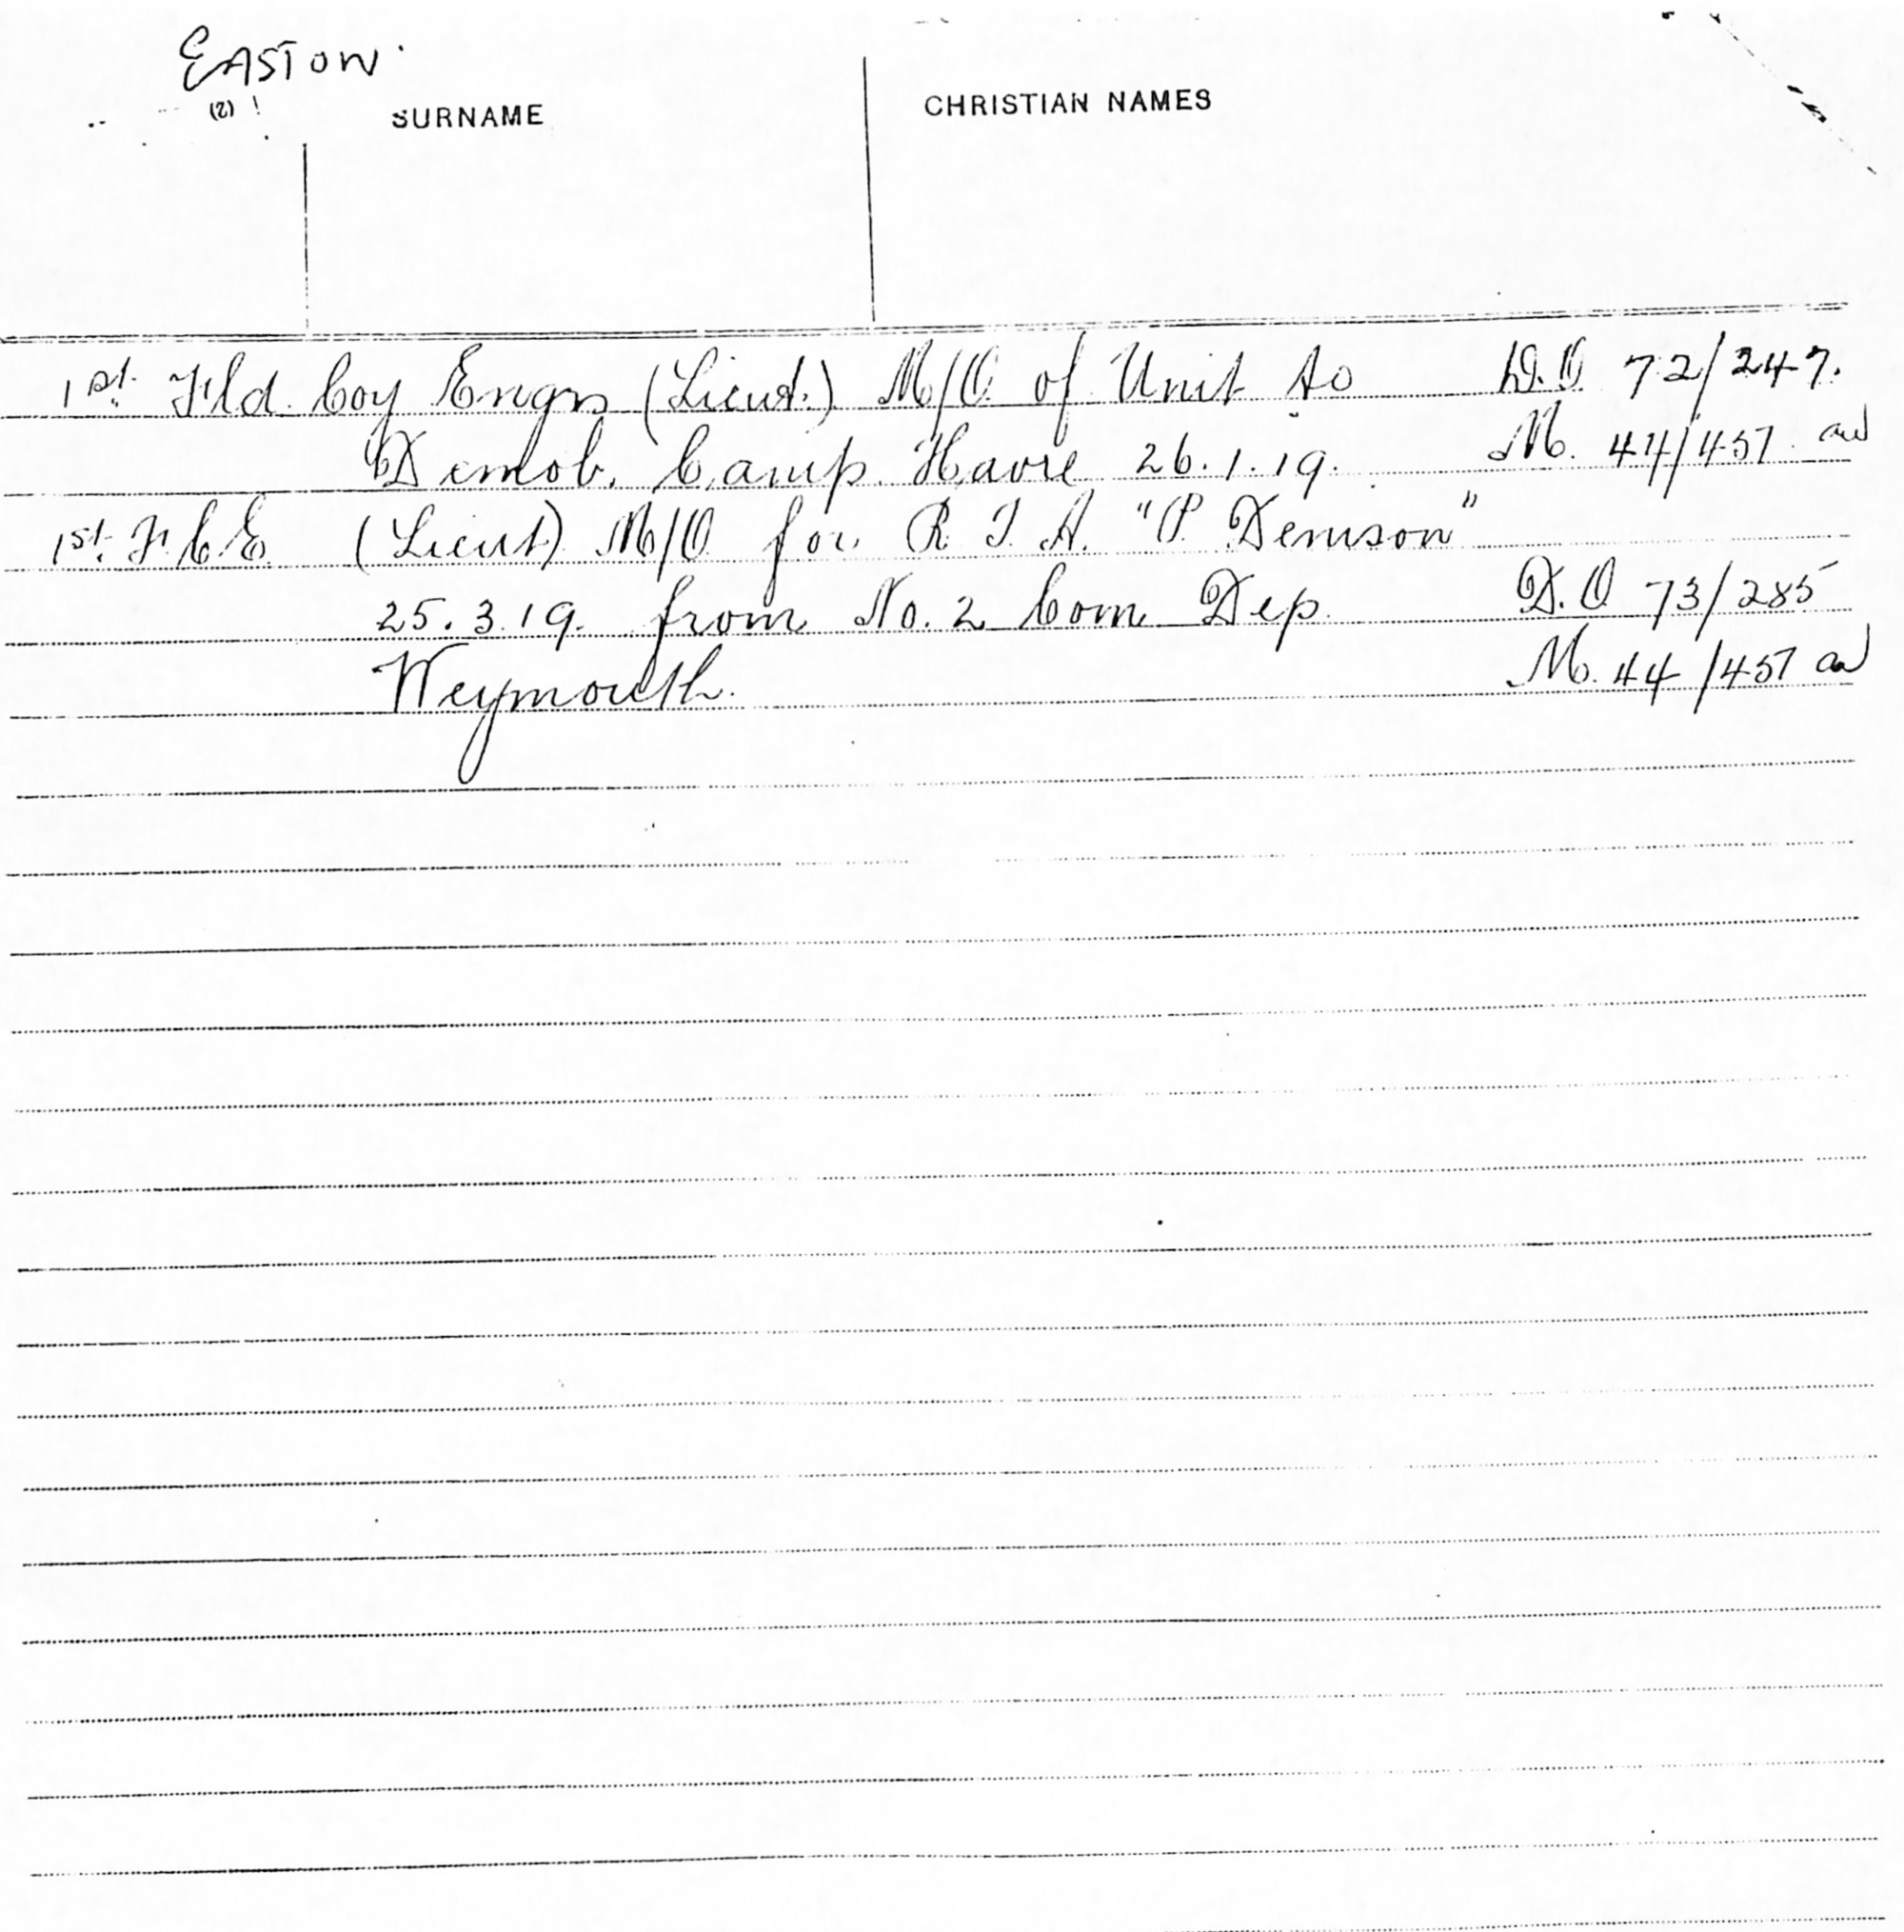 EASTON
(2)
SURNAME
CHRISTIAN NAMES
1st. Fld. Coy Engrs (Lieut.) M/O. of Unit to D.O 72/247.
Demob. Camp. Havre 26.1.19. M. 44/457
1st. F.C.E. (Lieut) M/O for R T A. "P. Denison"
25.3.19. from No. 2 Com Dep. D.O 73/285
Weymouth. M. 44/457